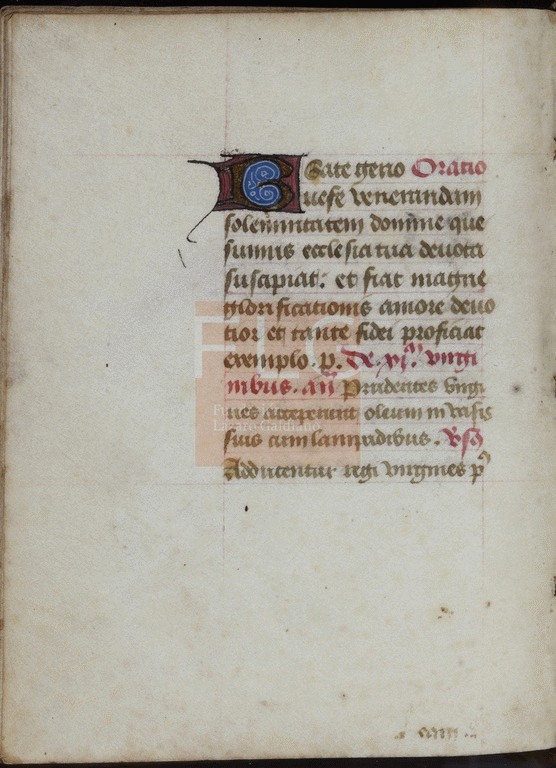 Gate geno Oratio
uese venerandam
solemnitatem domine que
sumus ecclesia tua deuota
suscipiat: et fiat magne
glorificationis amore deuo
tior et tante fidei proficiat
exemplo. p. De. xjᵐ. virgi
nibus. an̄ Prudentes virgi
nes acceperunt oleum in vasis
suis cum lampadibus. Vs̄
Adducentur regi virgines p̄
Lázaro Galdiano